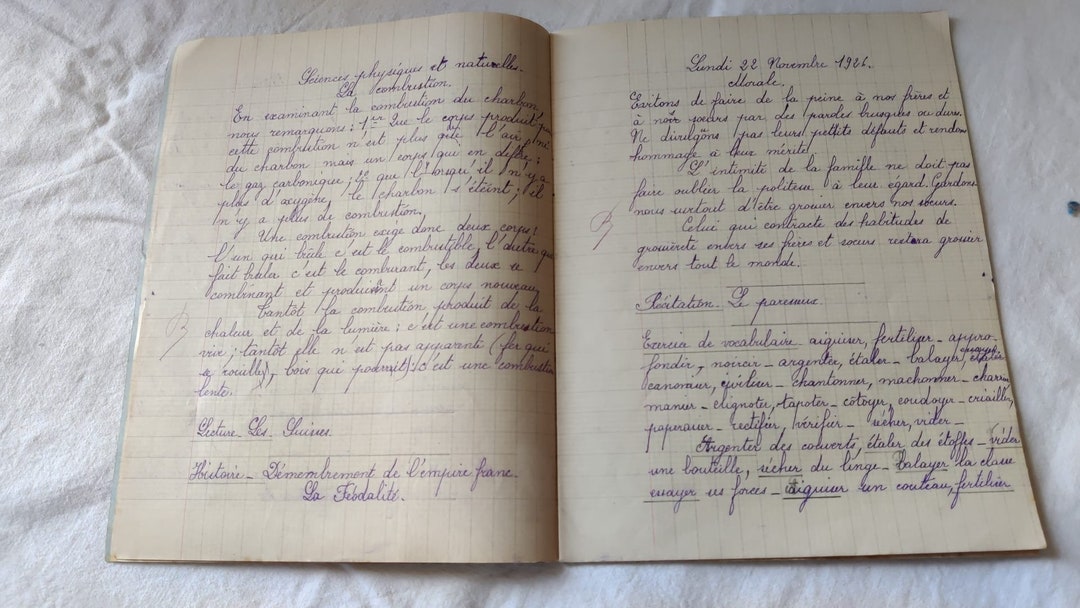 Sciences physiques et naturelles.
La combustion.
En examinant la combustion du charbon,
nous remarquons : 1er Que le corps produit par
cette combustion n'est plus ni l'air, ni
du charbon mais un corps qui en diffère :
le gaz carbonique ; 2e que lorsqu'il n'y a
plus d'oxygène, le charbon s'éteint ; il
n'y a plus de combustion.
Une combustion exige donc deux corps :
l'un qui brûle c'est le combustible, l'autre qui
fait brûler c'est le comburant, les deux se
combinant et produisant un corps nouveau,
Tantôt la combustion, produit de la
chaleur et de la lumière : c'est une combustion
vive ; tantôt elle n'est pas apparente (fer qui
a rouillé), bois que pourrit) : c'est une combustion
lente.
Lecture Les Suisses.
Histoire _ Démembrement de l'empire franc.
La Féodalité.
Lundi 22 Novembre 1926.
Morale.
Evitons de faire de la peine à nos frères et
à nos soeurs par des paroles brusques ou dures.
Ne divulgons pas leurs petits défauts et rendons
hommage à leur mérite.
L'intimité de la famille ne doit pas
faire oublier la politesse à leur égard. Gardons
nous surtout d'être grossier envers nos soeurs.
Celui qui contracte des habitudes de
grossièreté envers ses frères et soeurs restera grossier
envers tout le monde.
Récitation. Le paresseux.
Exercice de vocabulaire aiguiser, fertiliser _ appro-
fondir, noircir _ argenter, étaler _ balayer, essayer
canoniser, civiliser _ chantonner, machonner _
manier _ clignoter, tapoter _ côtoyer, coudoyer _ criailler,
_ rectifier, vérifier _ sécher, vider _
Argenter des couverts, étaler des étoffes _ vider
une bouteille, sécher du linge _ Balayer la classe
essayer ses forces _ aiguiser un couteau, fertiliser